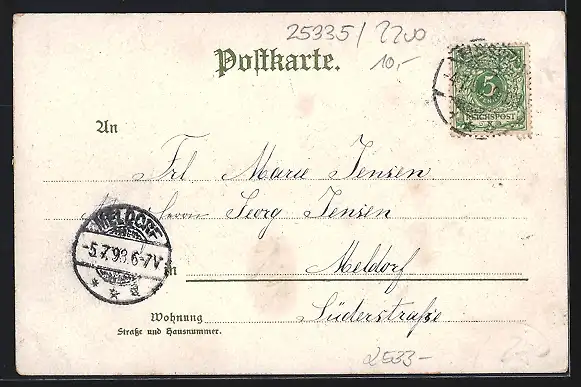 25335/2200
Postkarte.
10,-
5
REICHSPOST
An
Frl Marie Jensen
Herrn Georg Jensen
MELDORF
-5.7.98.6-7V
* * a
in Meldorf
Wohnung Süderstraße
Straße und Hausnummer.
2E33-